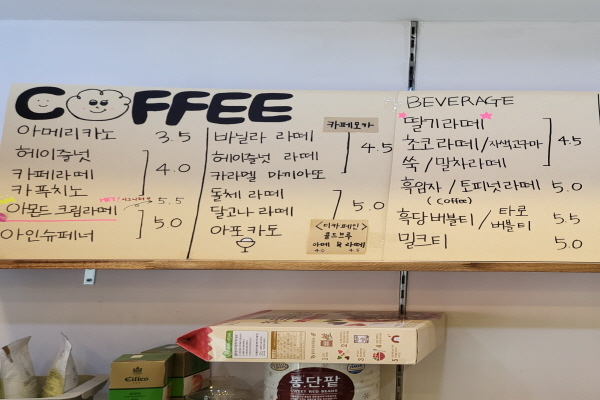 COFFEE
아메리카노 3.5
헤이즐넛
카페라떼 4.0
카푸치노
아몬드 크림라떼 5.5
아인슈페너 5.0
카페모카
바닐라 라떼
헤이즐넛 라떼 4.5
카라멜 마끼아또
돌체 라떼
달고나 라떼 5.0
아포카토
<디카페인>
콜드브루
아메 & 라떼
4.0 4.5
BEVERAGE
딸기라떼
초코라떼/자색고구마 4.5
쑥/말차라떼
흑임자/토피넛라떼 5.0
(coffee)
흑당버블티/타로버블티 5.5
밀크티 5.0
통단팥
SWEET RED BEANS